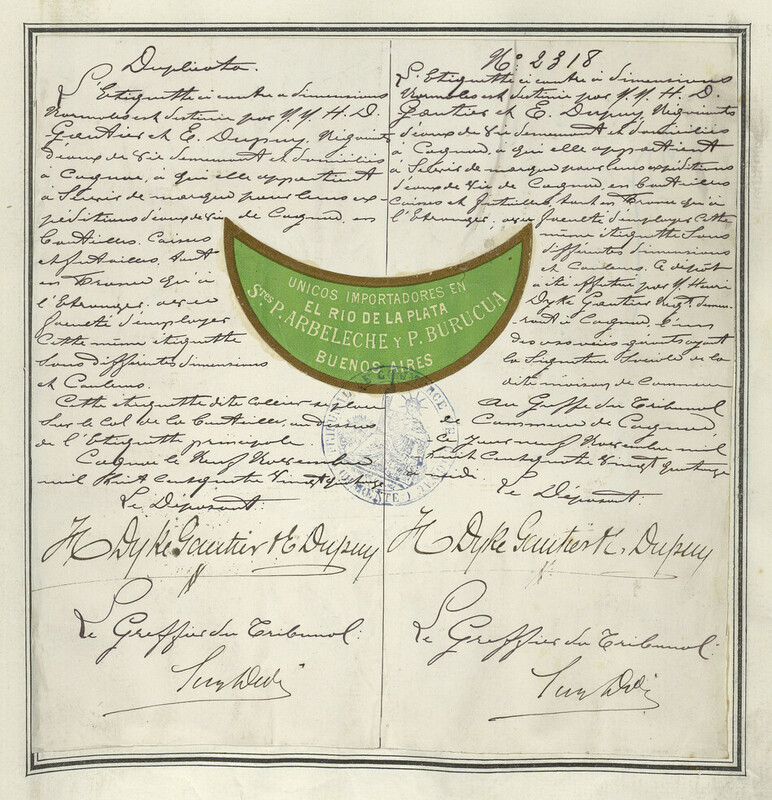 Duplicata.
L'Etiquette ci contre à dimensions
Normales est destinée par M. M. H. D.
Gautier et E. Dupuy, Négociants
d'eaux de vie demeurant et domiciliés
à Cognac, à qui elle appartient
à Servir de marque pour leurs ex-
péditions d'eaux de vie de Cognac, en
bouteilles, Caisses
et futailles, tant
en France qu'à
l'Etranger, avec
faculté d'employer
Cette même étiquette
Sous différentes dimensions
et Couleurs.
Cette étiquette dite collier se place
Sur le Col de la bouteille, au dessus
de l'Etiquette principale.
Cognac le Neuf Novembre
mil huit cent quatre vingt quatorze
Le Déposant:
H Dyke Gautier & E Dupuy
Le Greffier du Tribunal:
N° 2318
L'Etiquette ci contre à dimensions
Normales est destinée par M. M. H. D.
Gautier et E. Dupuy, Négociants
d'eaux de vie demeurant et domiciliés
à Cognac, à qui elle appartient
à Servir de marque pour leurs expéditions
d'eaux de vie de Cognac, en bouteilles
Caisses et futailles, tant en France qu'à
l'Etranger, avec faculté d'employer Cette
même étiquette Sous
différentes dimensions
et Couleurs. Ce dépôt
a été effectué par M. Henri
Dyke Gautier Négt. demeu-
rant à Cognac, l'un
des associés gérants ayant
la Signature Sociale de la
dite maison de Commerce
au Greffe du Tribunal
de Commerce de Cognac
Ce jour neuf Novembre mil
huit cent quatre vingt quatorze
Le Déposant:
H Dyke Gautier & E. Dupuy
Le Greffier du Tribunal:
UNICOS IMPORTADORES EN
EL RIO DE LA PLATA
Sres P. ARBELECHE Y P. BURUCUA
BUENOS AIRES